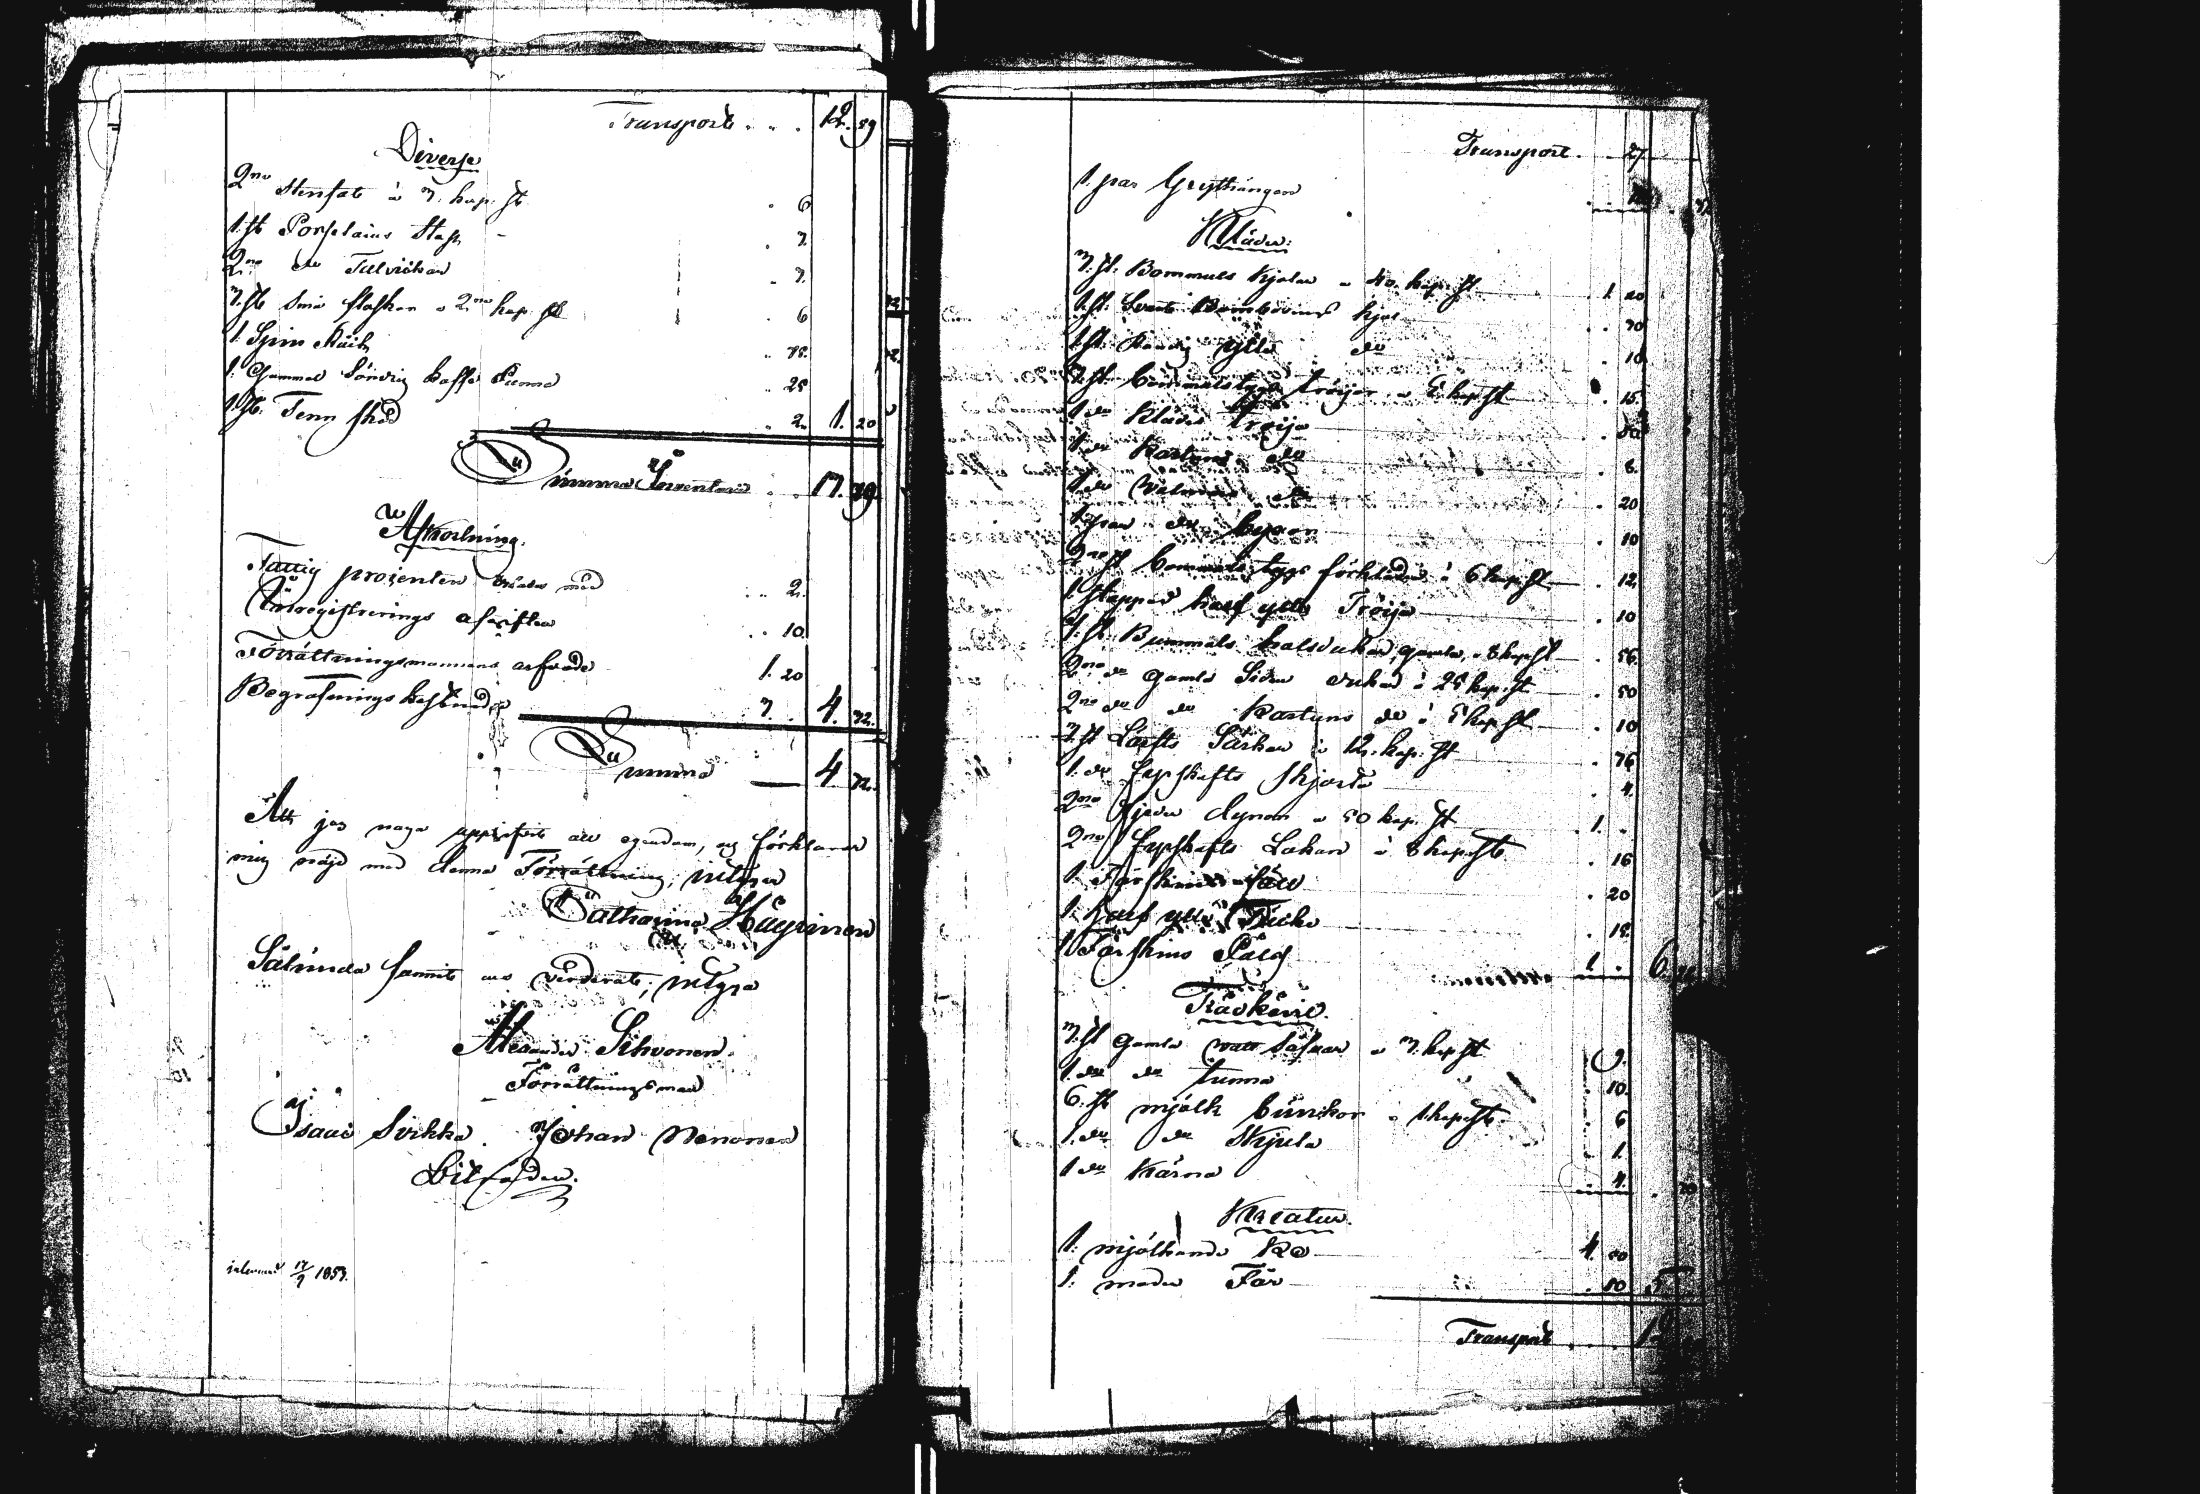 Transport . . . 12. 59
Diverse
2ne Stenfat à 3. kop. St . 6
1. St Porslains Stop . 3.
2ne do Talrickar . 3.
3. St små flaskor à 2ne kop. St . 6
1. Spin Råck . 75.
1. Gammal Söndrig kaffe Panna . 25
1. St. Tenn sked . 2. 1. 20
Summa Inventarii . . 13. 79.
Afkortning.
Fattig prozenten med . . 2.
Inregistrerings afgiften . . 10.
Förrättningsmannens arfvode 1. 20
Begrafnings kostnad 3. . 4. 32.
Summa 4 32.
Att jag noga uppgifvit all egendom, och förklarar
mig nöjd med denna Förrättning; intygar
Catharina Häyrinen
Sålunda samt värderat; intyga
Alexander Sihvonen.
Förrättningsman
Isaac Svikka. Johan Nenonen
Bitsoden.
inlemnad 17/9 1853.
Transport. . . 27
1. par
Kläder:
3. St. Bommuls Kjolar à 40. kop. St 1. 20
1. St. Svart Kjol . . 30
1. St. Randig ylle do . 10.
3. St. bommulstygs tröijor à 5. kop. St . 15.
1 do Klädes tröija
1. do Kartuns do . 8.
1. do Valmars do . 20
1. par do byxor . 10
2ne St bommulstygs förkläden à 6 kop. St . 12.
1. Stoppad half ylle Tröija . 10
7. St. Bummuls halsdukar, gamla, à 8 kop. St . 56.
2ne do gamla Siden dukar à 25 kop. St . 50
2ne do do Kartuns do à 5 kop. St . 10
3. St Lärfts Särkar à 12. kop. St . 36
1. do fyrskafts skjorta . 4.
2ne fjeder dynor à 50 kop. St . 1. .
2ne fyrskafts Lakan à 8 kop. St . 16
1. Fårskins fäll . 20
1. half ylle Täcke . 15.
1 Fårskins Päls 1 . 6
Trädkäril.
3. St gamla watt Såar à 3. kop. St . 9.
1. do do tunna . 10.
6. St mjölk bunkor à 1 kop. St . 6
1. do do Skjula . 1.
1 do Kärna . 4.
Kreatur.
1. mjölkande Ko 4. 50
1. moder Får . 50 5
Transport . . . 12